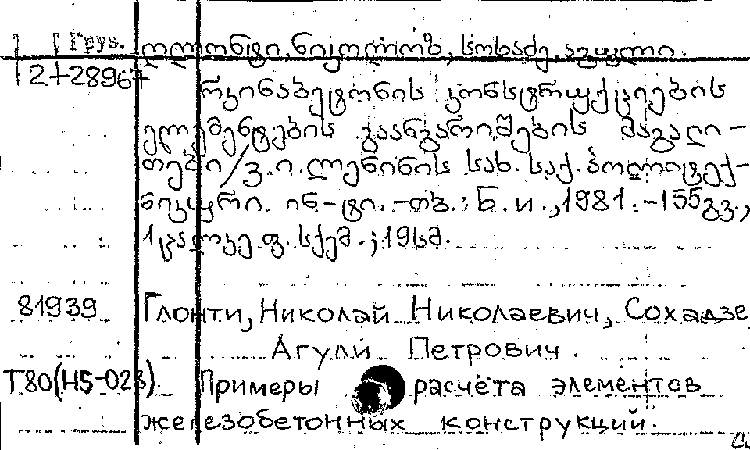 Груз. ღლონტი, ნიკოლოზ, სოხაძე, აგული.
2-28967 რკინაბეტონის კონსტრუქციების
ელემენტების გაანგარიშების მაგალი-
თები / ვ. ი. ლენინის სახ. საქ. პოლიტექ-
ნიკური. ინ-ტი. -თბ.: ბ. ი., 1981. -155გვ.,
1 ცალკე ფ. სქემ.; 19სმ.
81939 Глонти, Николай Николаевич, Сохадзе
Агули Петрович.
Т80(Н5-023) Примеры расчёта элементов
железобетонных конструкций.